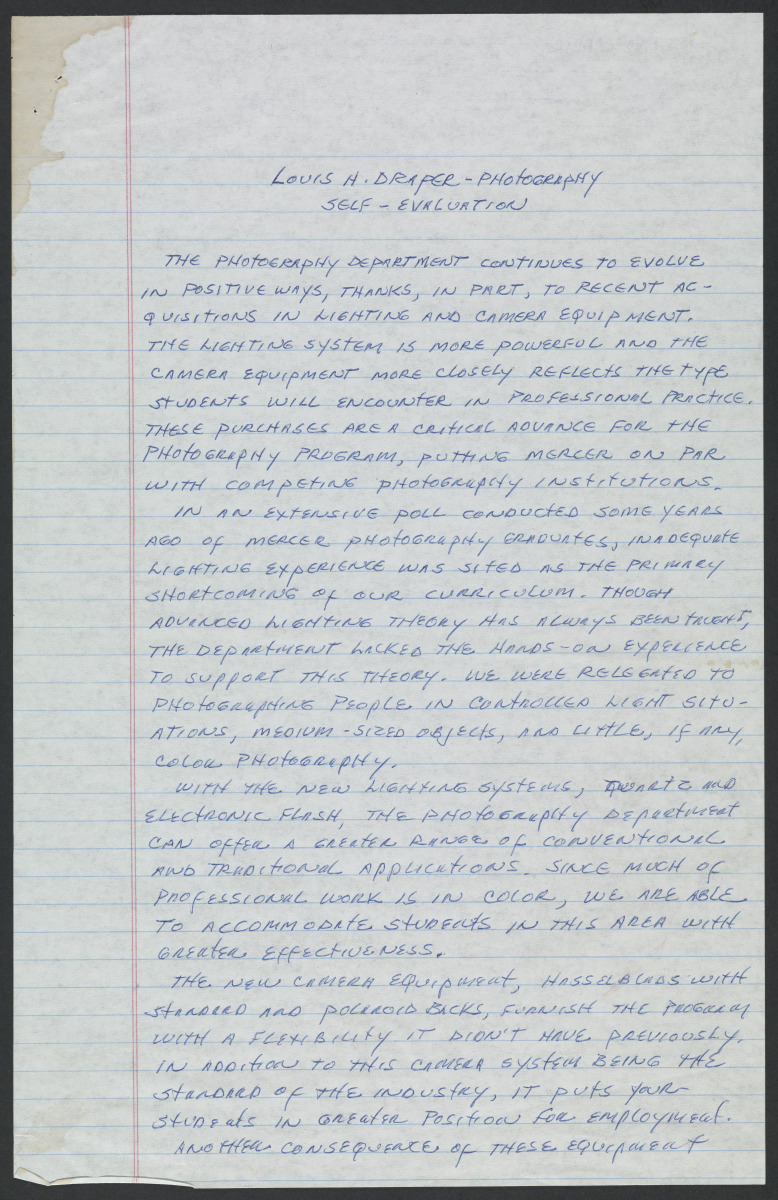 LOUIS H. DRAPER - PHOTOGRAPHY
SELF - EVALUATION
THE PHOTOGRAPHY DEPARTMENT CONTINUES TO EVOLVE
IN POSITIVE WAYS, THANKS, IN PART, TO RECENT AC-
QUISITIONS IN LIGHTING AND CAMERA EQUIPMENT.
THE LIGHTING SYSTEM IS MORE POWERFUL AND THE
CAMERA EQUIPMENT MORE CLOSELY REFLECTS THE TYPE
STUDENTS WILL ENCOUNTER IN PROFESSIONAL PRACTICE.
THESE PURCHASES ARE A CRITICAL ADVANCE FOR THE
PHOTOGRAPHY PROGRAM, PUTTING MERCER ON PAR
WITH COMPETING PHOTOGRAPHY INSTITUTIONS.
IN AN EXTENSIVE POLL CONDUCTED SOME YEARS
AGO OF MERCER PHOTOGRAPHY GRADUATES, INADEQUATE
LIGHTING EXPERIENCE WAS SITED AS THE PRIMARY
SHORTCOMING OF OUR CURRICULUM. THOUGH
ADVANCED LIGHTING THEORY HAS ALWAYS BEEN TAUGHT,
THE DEPARTMENT LACKED THE HANDS-ON EXPERIENCE
TO SUPPORT THIS THEORY. WE WERE RELEGATED TO
PHOTOGRAPHING PEOPLE IN CONTROLLED LIGHT SITU-
ATIONS, MEDIUM-SIZED OBJECTS, AND LITTLE, IF ANY,
COLOR PHOTOGRAPHY.
WITH THE NEW LIGHTING SYSTEMS, QUARTZ AND
ELECTRONIC FLASH, THE PHOTOGRAPHY DEPARTMENT
CAN OFFER A GREATER RANGE OF CONVENTIONAL
AND TRADITIONAL APPLICATIONS. SINCE MUCH OF
PROFESSIONAL WORK IS IN COLOR, WE ARE ABLE
TO ACCOMMODATE STUDENTS IN THIS AREA WITH
GREATER EFFECTIVENESS.
THE NEW CAMERA EQUIPMENT, HASSELBLADS WITH
STANDARD AND POLAROID BACKS, FURNISH THE PROGRAM
WITH A FLEXIBILITY IT DIDN'T HAVE PREVIOUSLY.
IN ADDITION TO THIS CAMERA SYSTEM BEING THE
STANDARD OF THE INDUSTRY, IT PUTS YOUR
STUDENTS IN GREATER POSITION FOR EMPLOYMENT.
ANOTHER CONSEQUENCE OF THESE EQUIPMENT